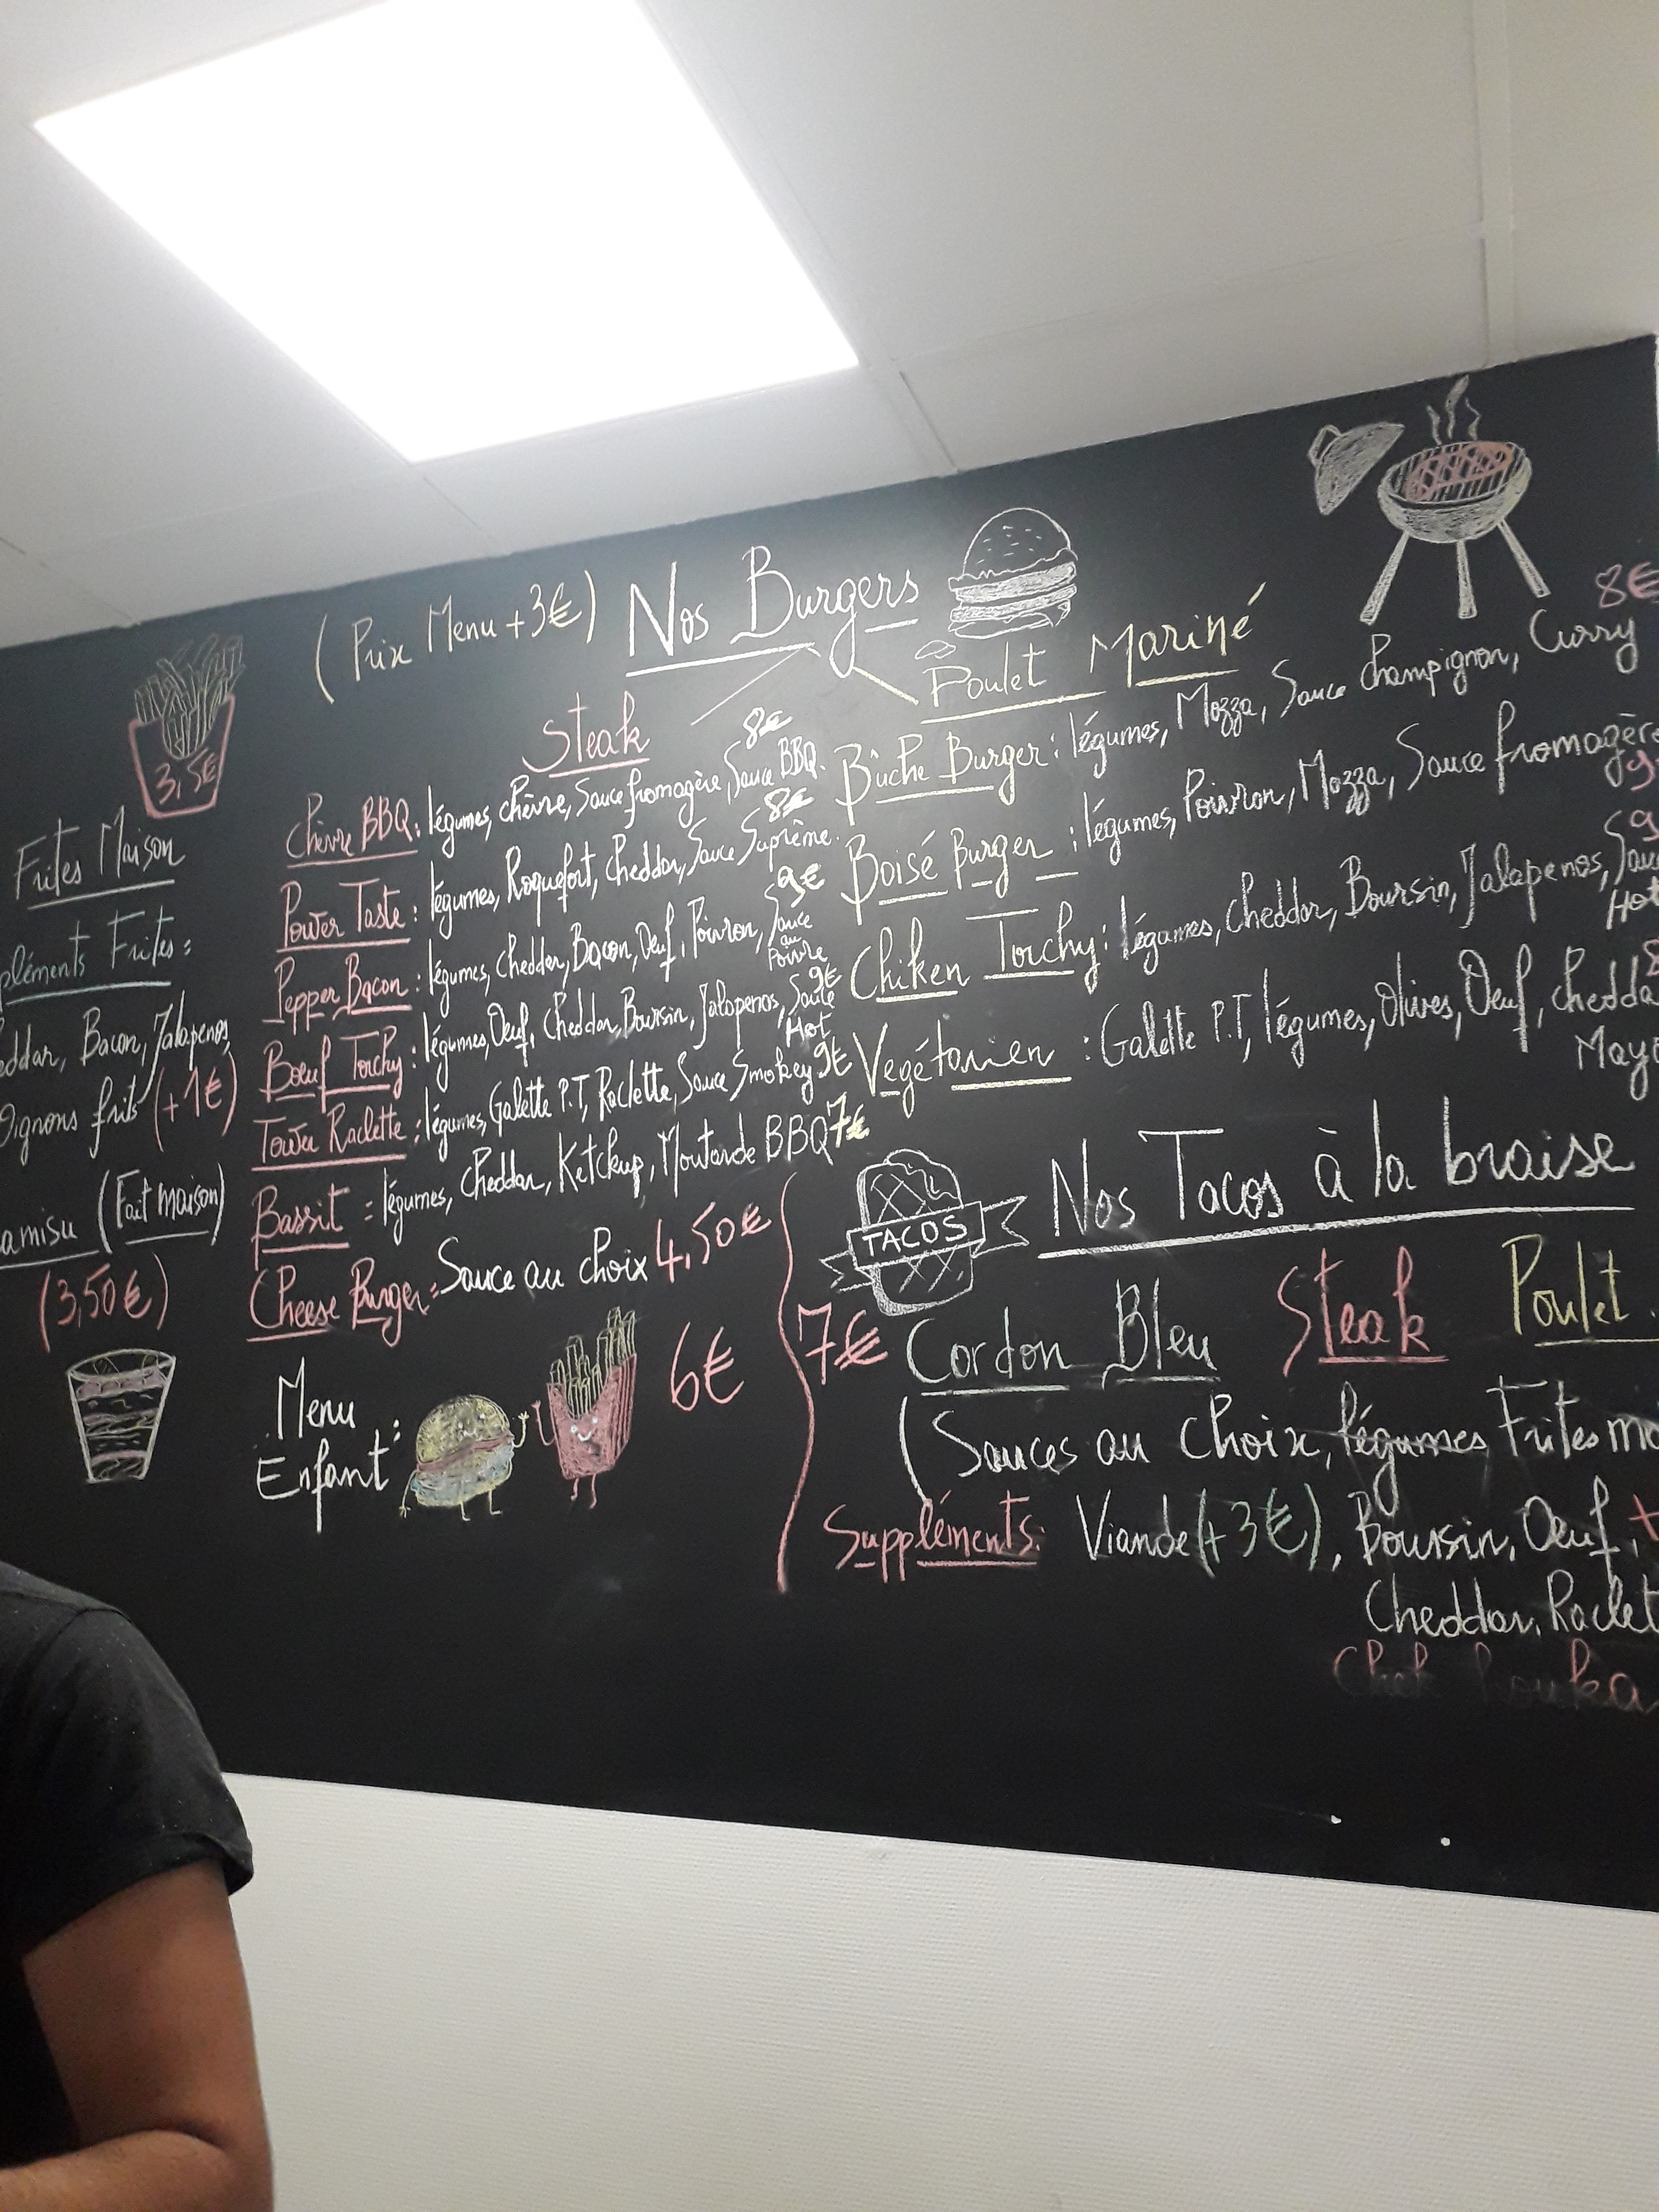 (Prix Menu +3€) Nos Burgers
3,5€
Frites Maison
pléments Frites:
eddar, Bacon, Jalapenos,
Oignons frits (+1€)
amisu (Fait maison)
(3,50€)
Steak
8€
Chèvre BBQ: légumes, chèvre, Sauce fromagère, Sauce BBQ.
8€
Power Taste: légumes, Roquefort, Cheddar, Sauce Suprême.
9€
Pepper Bacon: légumes, cheddar, Bacon, Oeuf, Poivron, Sauce
au
Poivre
9€
Bœuf Torchy: légumes, Oeuf, Cheddar, Boursin, Jalapenos, Sauce
Hot
Tower Raclette: légumes, Galette P.T, Raclette, Sauce Smokey 9€
Bassit: légumes, cheddar, Ketchup, Moutarde BBQ 7€
Cheese Burger: Sauce au choix 4,50€
Menu
Enfant:
6€
Poulet Mariné
8€
Bûche Burger: légumes, Mozza, Sauce champignon, Curry
Boisé Burger: légumes, Poivron, Mozza, Sauce fromagère
9
9
Chiken Torchy: légumes, Cheddar, Boursin, Jalapenos, Sau
Hot
8
Végétarien: Galette P.T, légumes, Olives, Oeuf, chedda
Mayo
TACOS
Nos Tacos à la braise
7€ Cordon Bleu Steak Poulet.
(Sauces au choix, légumes, Frites ma
Suppléments: Viande (+3€), Boursin, Oeuf, +
Cheddar, Raclet